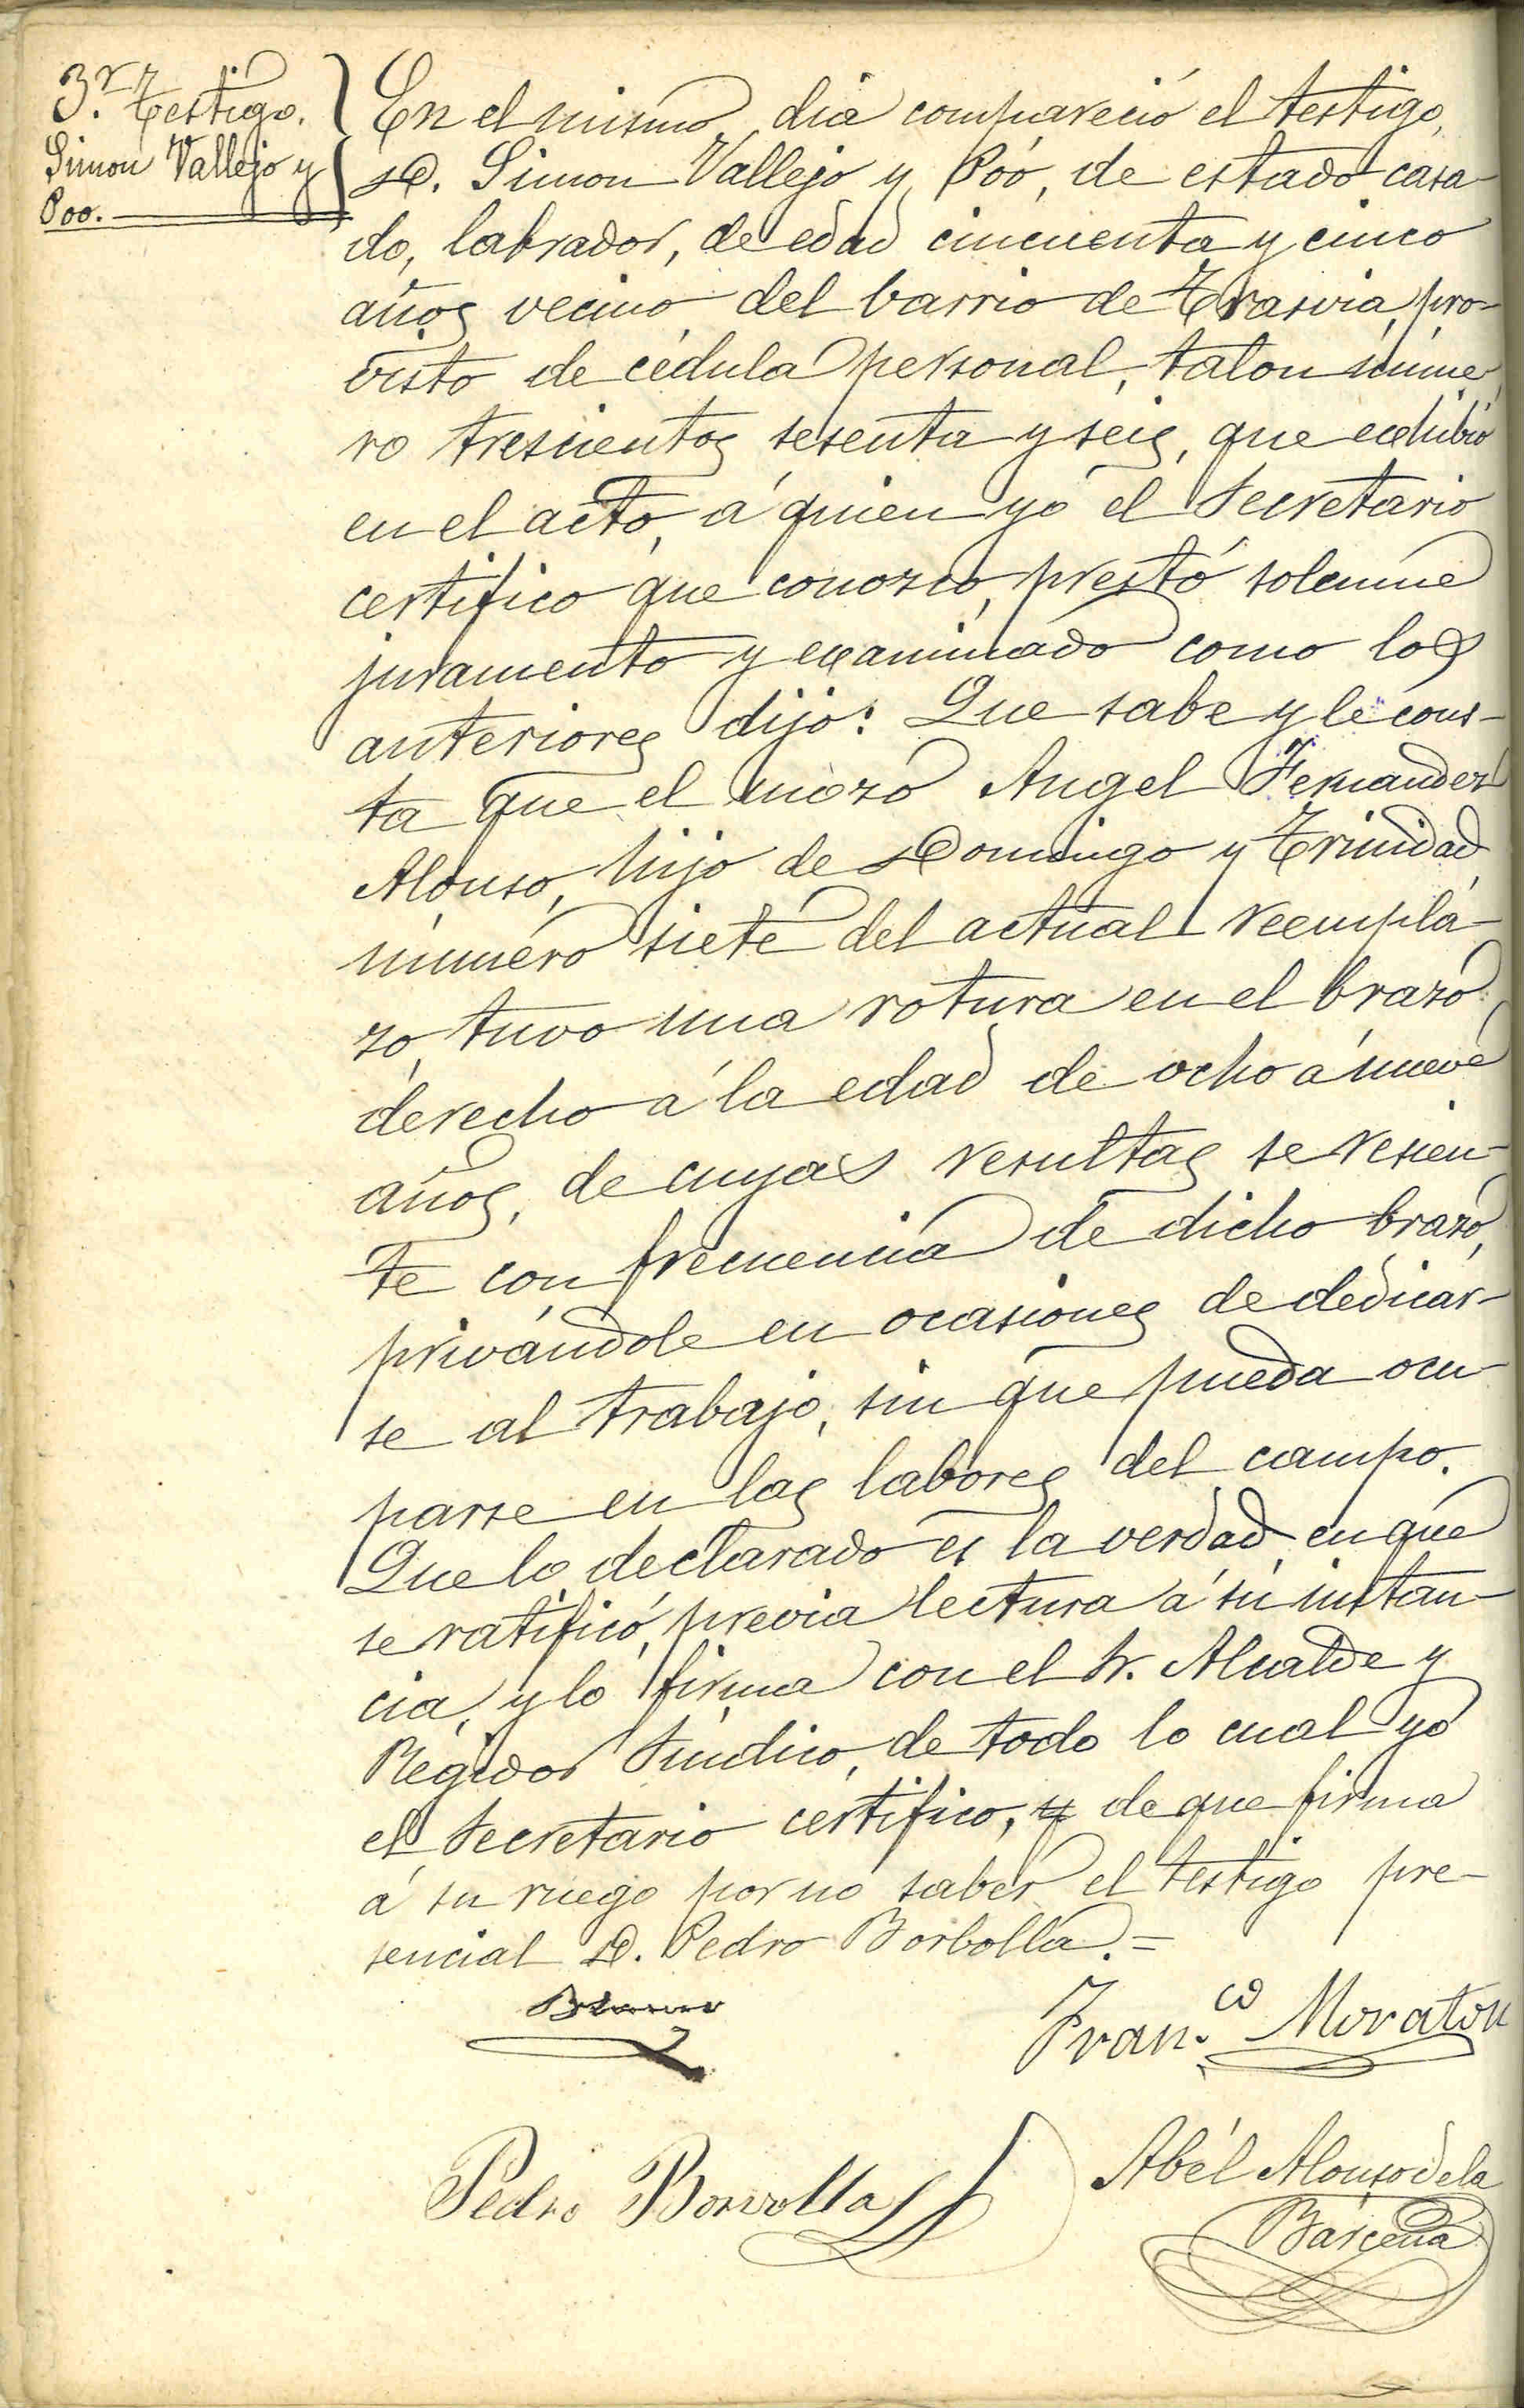 3.r Testigo.
Simon Vallejo y
Poo.
En el mismo dia compareció el testigo,
D. Simon Vallejo y Póo, de estado casa-
do, labrador, de edad cincuenta y cinco
años vecino del barrio de Trasvia, pro-
visto de cédula personal, talon núme-
ro trescientos sesenta y seis, que exhibió
en el acto, á quien yo el Secretario
certifico que conozco, prestó solemne
juramento y examinado como los
anteriores dijo: Que sabe y le cons-
ta que el mozo Angel Fernandez
Alonso, hijo de Domingo y Trinidad
número siete del actual reempla-
zo, tuvo una rotura en el brazo
derecho á la edad de ocho á nueve
años, de cuyas resultas se resien-
te con frecuencia de dicho brazo,
privándole en ocasiones de dedicar-
se al trabajo, sin que pueda ocu-
parse en las labores del campo.
Que lo declarado es la verdad en que
se ratificó, previa lectura á su instan-
cia, y lo firma con el Sr. Alcalde y
Regidor Síndico, de todo lo cual yo
el Secretario certifico, y de que firma
á su ruego por no saber el testigo pre-
sencial D. Pedro Borbolla.=
Fran.co Moraton
Pedro Borvolla
Abél Alonso de la
Bárcena